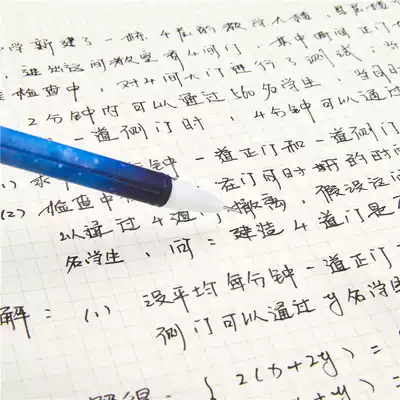 学新建了一栋4层的教学大楼,每层楼
进出这间教室有4间门,其中两间正门
检查中,对4间大门进行了测试:当
2分钟内可以通过560名学生,当同时
一道侧门时,4分钟可以通过
(1)求 分钟一道正门和一道侧门
(2)检查中 在门同时开的时间
以通过4道门撤离,假设这间
名学生,问:建造4道门是
解:(1)设平均每分钟一道正门
侧门可以通过y名学生
2(x+2y)=
+y)=